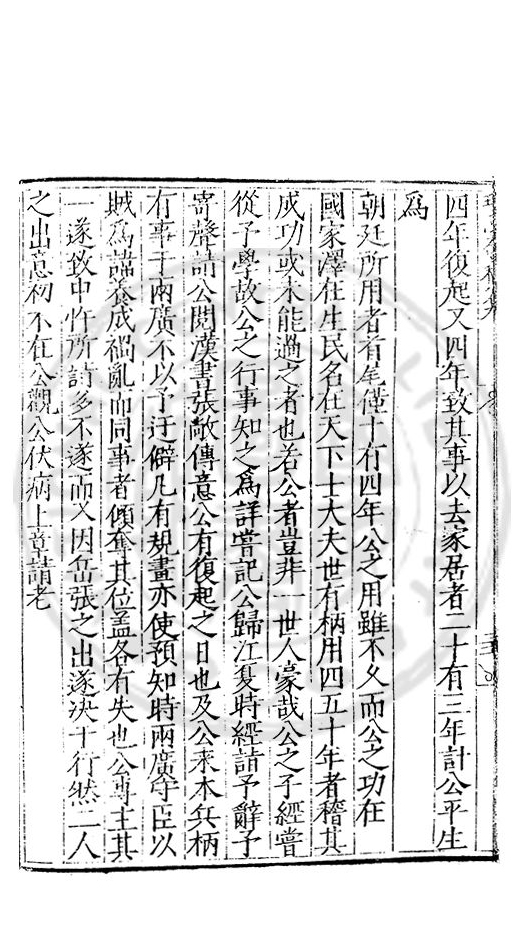 四年復起又四年致其事以去家居者二十有三年計公平生
為
朝廷所用者首尾僅十有四年公之用雖不久而公之功在
國家澤在生民名在天下士大夫世有柄用四五十年者稽其
成功或未能過之者也若公者豈非一世人豪哉公之子經嘗
從予學故公之行事知之為詳嘗記公歸江夏時經詣予辭予
寄聲請公閱漢書張敞傳意公有復起之日也及公來本兵柄
有事于兩廣不以予迂僻凡有規畫亦使預知時兩廣守臣以
賊為諱養成禍亂而同事者傾奪其位盖各有失也公專主其
一遂致中忤所請多不遂而又因岳張之出遂決于行然二人
之出意初不在公觀公伏病上章請老